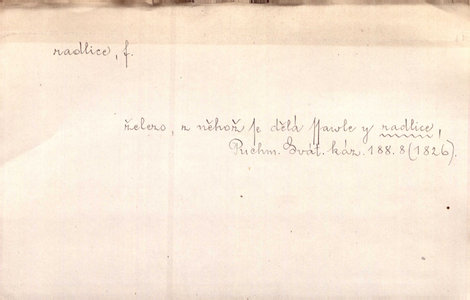 radlice, f.
železo, z něhož se dělá ssawle y radlice,
Puchm. Svát. káz. 188. 8 (1826).